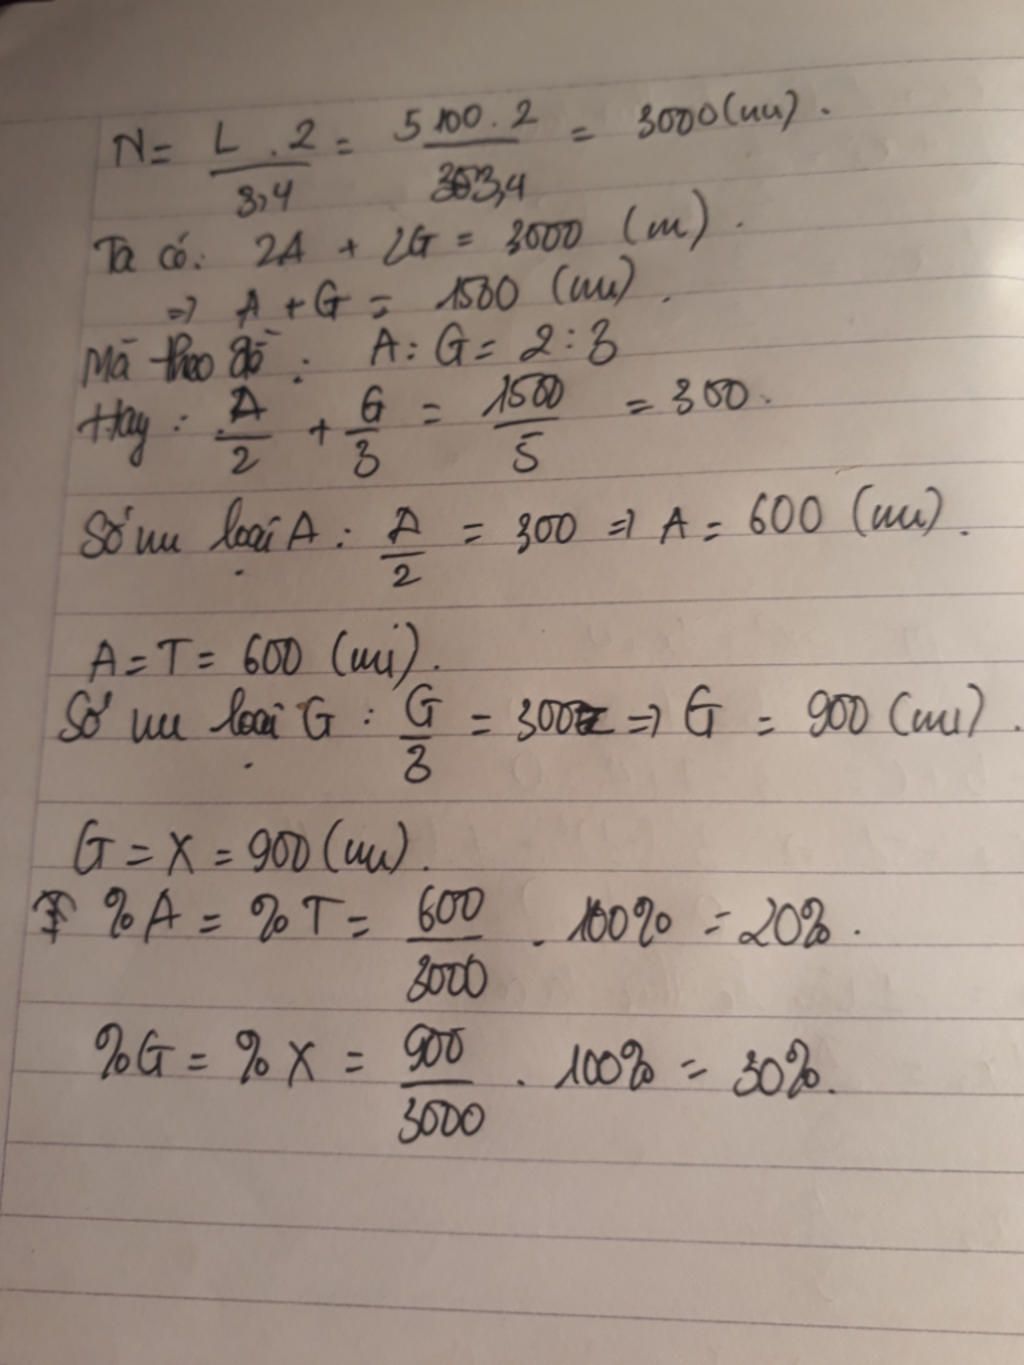 N = L . 2 / 3,4 = 5100 . 2 / 3,4 = 3000 (nu).
Ta có: 2A + 2G = 3000 (nu).
=> A + G = 1500 (nu).
Mà theo đề: A : G = 2 : 3
Hay: A/2 + G/3 = 1500/5 = 300.
Số nu loại A : A/2 = 300 => A = 600 (nu).
A = T = 600 (nu).
Số nu loại G : G/3 = 300 => G = 900 (nu).
G = X = 900 (nu).
%A = %T = 600/3000 . 100% = 20%.
%G = %X = 900/3000 . 100% = 30%.